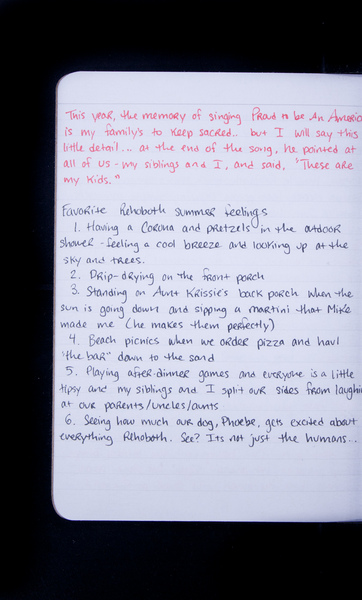 This year, the memory of singing Proud to be An America
is my family's to keep sacred.. but I will say this
little detail... at the end of the song, he pointed at
all of us - my siblings and I, and said, "These are
my kids."
Favorite Rehoboth summer feelings
1. Having a Corona and pretzels in the outdoor
shower - feeling a cool breeze and looking up at the
sky and trees.
2. Drip-drying on the front porch
3. Standing on Aunt Krissie's back porch when the
sun is going down and sipping a martini that Mike
made me (he makes them perfectly)
4. Beach picnics when we order pizza and haul
"the bar" down to the sand
5. Playing after-dinner games and everyone is a little
tipsy and my siblings and I split our sides from laughin
at our parents/uncles/aunts
6. Seeing how much our dog, Phoebe, gets excited about
everything Rehoboth. See? Its not just the humans...